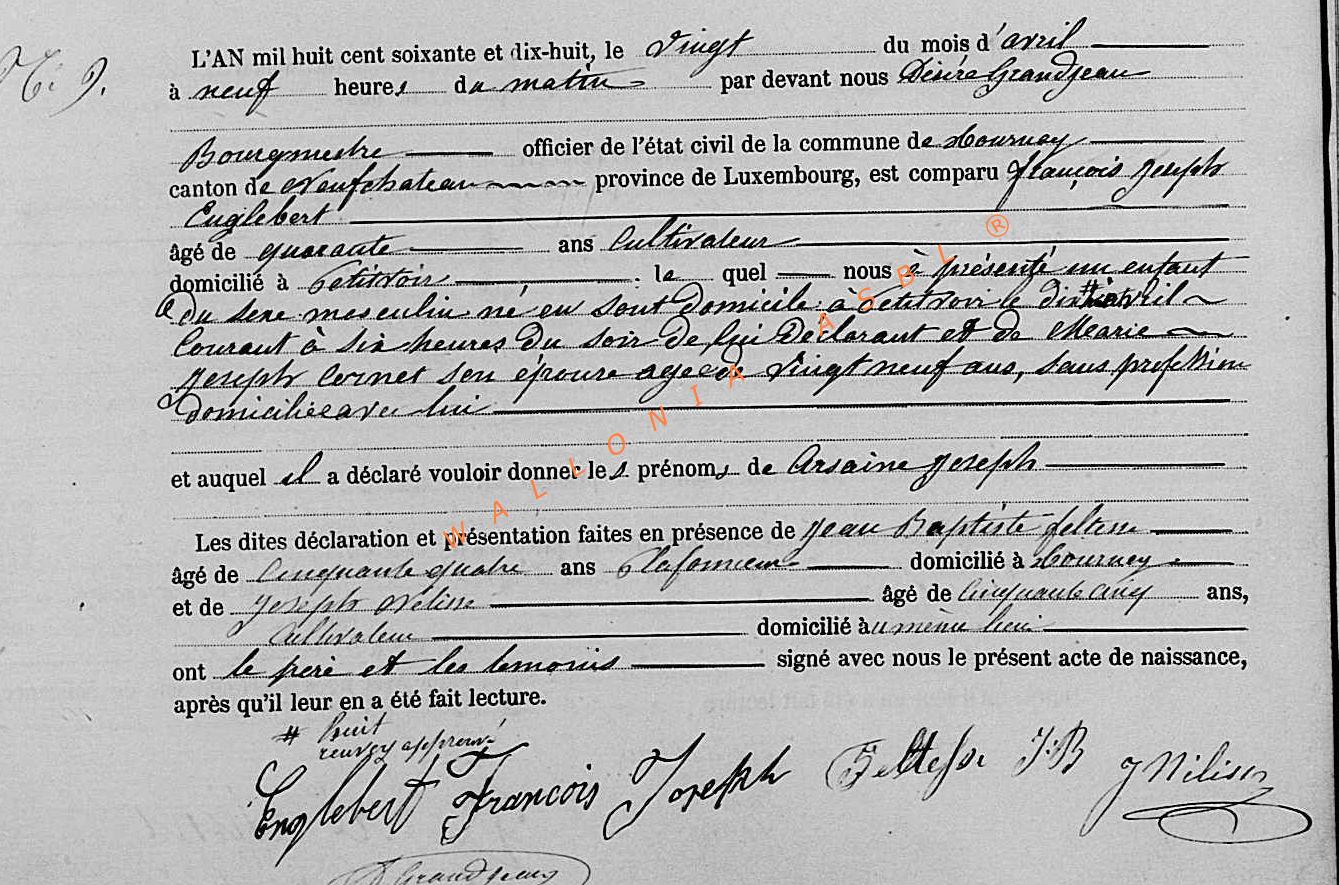 N° 9.
L'AN mil huit cent soixante et dix-huit, le vingt du mois d'avril
à neuf heures du matin par devant nous Désiré Grandjean
Bourgmestre officier de l'état civil de la commune de Tournay
canton de Neufchateau province de Luxembourg, est comparu François Joseph
Englebert
âgé de quarante ans Cultivateur
domicilié à Petitvoir : le quel nous à présenté un enfant
du sexe masculin né en sont domicile à Petitvoir le dix # avril
Courant à six heures du soir de lui Déclarant et de Marie
Joseph Cornet son épouse agée de Vingt neuf ans, sans profession
domiciliée avec lui
et auquel il a déclaré vouloir donner les prénoms de Arsaine Joseph
Les dites déclaration et présentation faites en présence de Jean Baptiste
âgé de Cinquante quatre ans Plafonneur domicilié à Tournay
et de Joseph Nélisse âgé de Cinquante cinq ans,
Cultivateur domicilié au même lieu
ont le père et les temoins signé avec nous le présent acte de naissance,
après qu'il leur en a été fait lecture.
# huit
renvoy approuvé
Englebert François Joseph Feltesse J:B J Nilisse
D Grandjean
WALLONIA ASBL ®